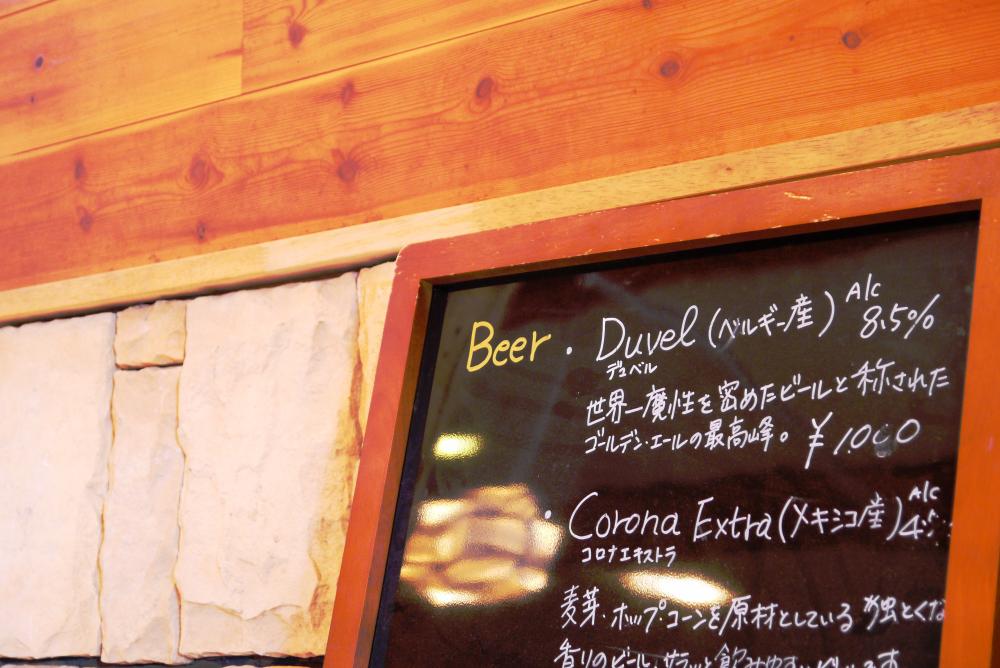 Beer ・ Duvel (ベルギー産) Alc 8.5%
デュベル
世界一魔性を密めたビールと称された
ゴールデン・エールの最高峰。 ¥1.000
・ Corona Extra (メキシコ産) Alc
コロナエキストラ
麦芽・ホップ・コーンを原材としている 独とくな
香りのビール・サラッと飲みやすい